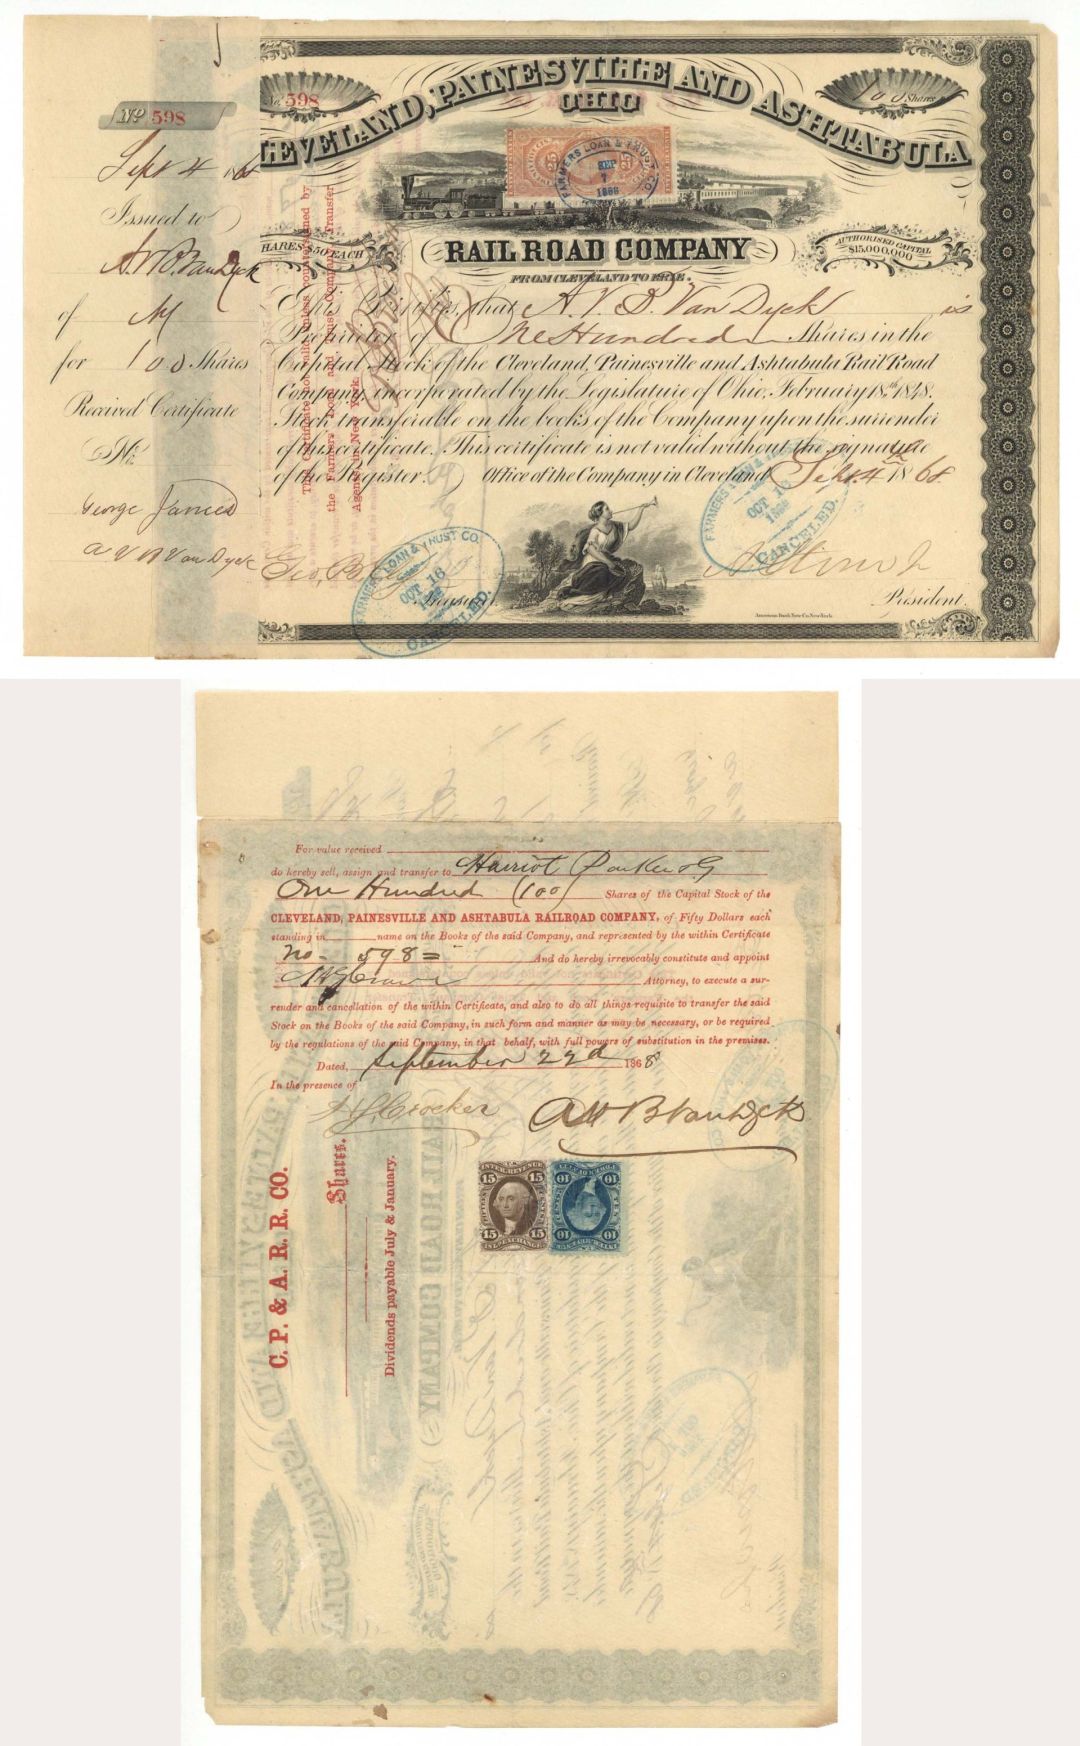 No. 598
100 Shares
CLEVELAND, PAINESVILLE AND ASHTABULA
OHIO
RAIL ROAD COMPANY
FROM CLEVELAND TO ERIE.
SHARES $50 EACH
AUTHORISED CAPITAL
$15,000,000
FARMERS LOAN & TRUST CO
SEP
7
1868
No 598
Sept 4 1868
Issued to
A. V. B. Van Dyck
of
for 100 Shares
Received Certificate
No.
George James
A V B Van Dyck
This Certificate not valid unless countersigned by
the Farmers Loan and Trust Company, Transfer
Agents in New York.
This Certifies, that A. V. B. Van Dyck is
Proprietor of One Hundred Shares in the
Capital Stock of the Cleveland, Painesville and Ashtabula Rail Road
Company, incorporated by the Legislature of Ohio, February 18th 1848.
Stock transferable on the books of the Company upon the surrender
of this certificate. This certificate is not valid without the signature
of the Register. Office of the Company in Cleveland Sept. 4th 1868
FARMERS LOAN & TRUST CO.
OCT 16
1868
CANCELED.
FARMERS LOAN & TRUST CO.
OCT 16
1868
CANCELED.
Geo. B. Ely
Treasurer
President.
American Bank Note Co. New York.
For value received
do hereby sell, assign and transfer to Harriot
One Hundred (100) Shares of the Capital Stock of the
CLEVELAND, PAINESVILLE AND ASHTABULA RAILROAD COMPANY, of Fifty Dollars each
standing in name on the Books of the said Company, and represented by the within Certificate
No - 598 = And do hereby irrevocably constitute and appoint
Attorney, to execute a sur-
render and cancellation of the within Certificate, and also to do all things requisite to transfer the said
Stock on the Books of the said Company, in such form and manner as may be necessary, or be required
by the regulations of the said Company, in that behalf, with full powers of substitution in the premises.
Dated, September 22d 1868
In the presence of
Crocker
A V B Van Dyck
C. P. & A. R. R. CO.
Shares.
Dividends payable July & January.
U.S. INTER. REVENUE
15 15
FIFTEEN CENTS
15 15
INL. EXCHANGE
10 10
TEN CENTS
10 10